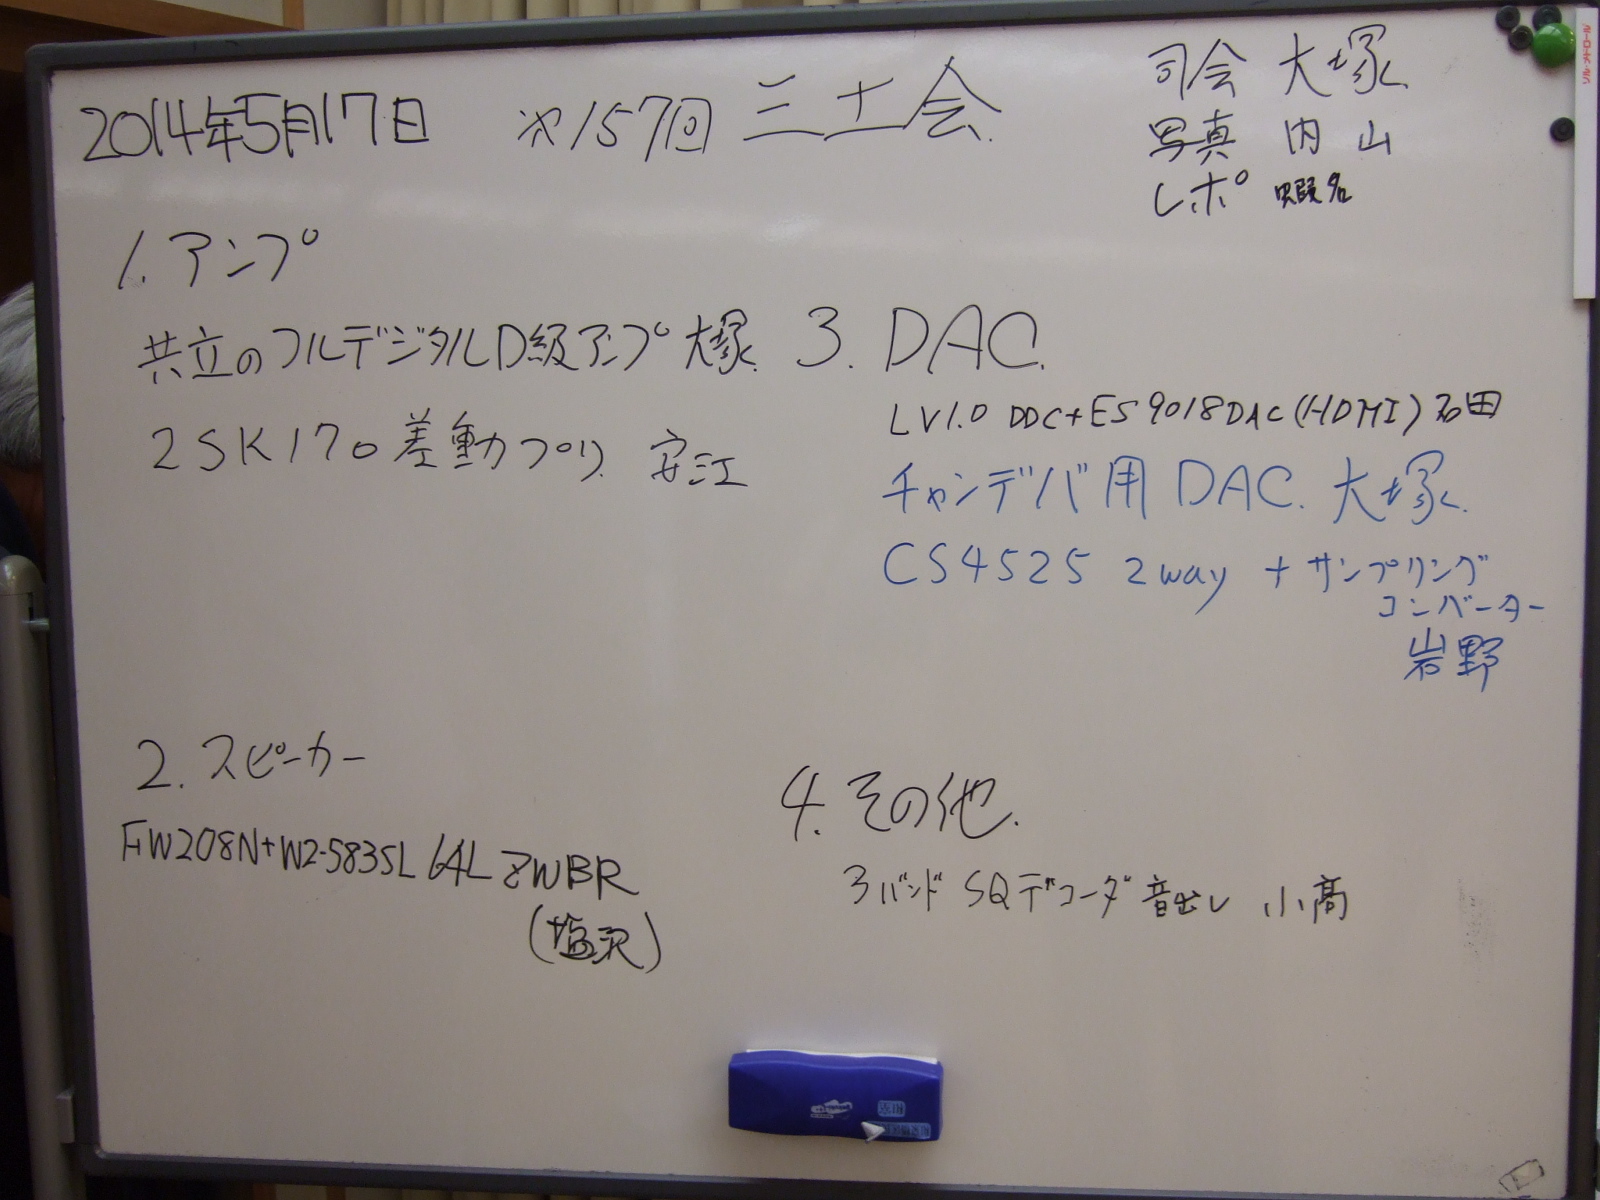 2014年5月17日 第157回 三土会
司会 大塚
写真 内山
レポ 蝦名
1. アンプ
共立のフルデジタルD級アンプ 大塚
2SK170差動プリ 安江
2. スピーカー
FW208N+W2-583SL 64L ZWBR
(塩沢)
3. DAC.
LV1.0 DDC+ES9018DAC(HDMI) 石田
チャンデバ用 DAC. 大塚
CS4525 2way + サンプリング
コンバーター
岩野
4. その他.
3バンド SQデコーダ 音出し 小高